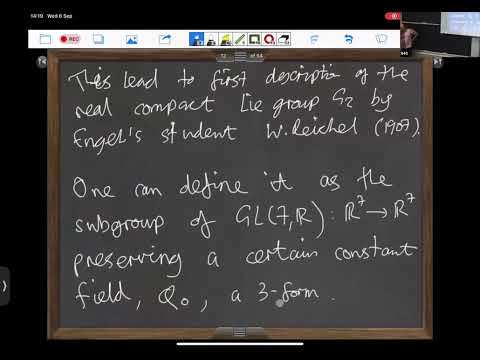 14:19 Wed 6 Sep
REC
12 of 54
This lead to first description of the
real compact Lie group G2 by
Engel's student W. Reichel (1907).
One can define it as the
subgroup of GL(7,R): R⁷→R⁷
preserving a certain constant
field, Q₀, a 3-form.